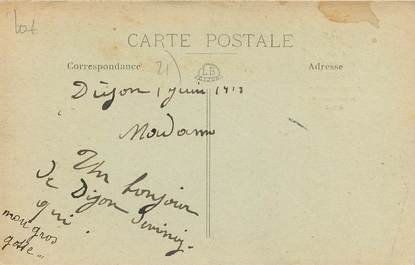 Lot
CARTE POSTALE
Correspondance
21)
LB
DIJON
Adresse
Dijon 1 juin 1918
Madame
Un bonjour
de Dijon
qui
mon gros